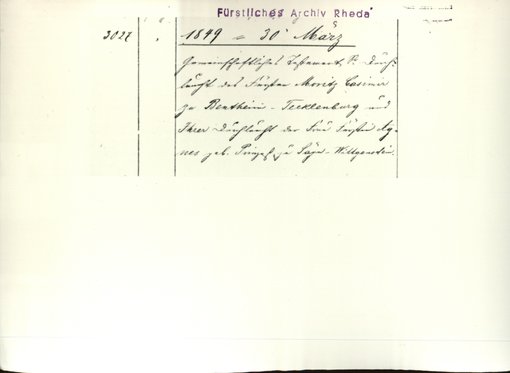 Fürstliches Archiv Rheda
3027
1849 = 30' März
Gemeinschaftliches Testament Sr. Durch-
laucht des Fürsten Moritz Casimir
zu Bentheim-Tecklenburg und
Ihrer Durchlaucht der Frau Fürstin Ag-
nes geb. Prinzeß zu Sayn-Wittgenstein.